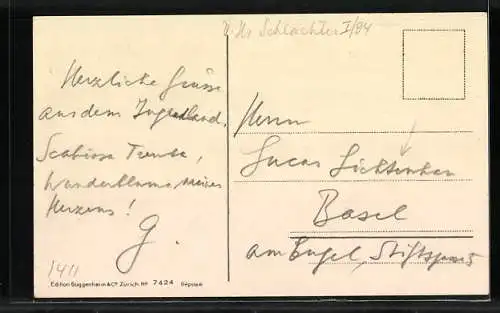 V. Hr Schlachter I/94
Herzliche Grüsse
aus dem Jugendland.
Scabiosa Tenuta,
Wunderblume meines
Herzens!
G.
Herrn
Lucas Lichtenhan
Basel
am Engel, Stiftsgasse 5
1411
Edition Guggenheim & Co Zürich Nr 7424 Dépose